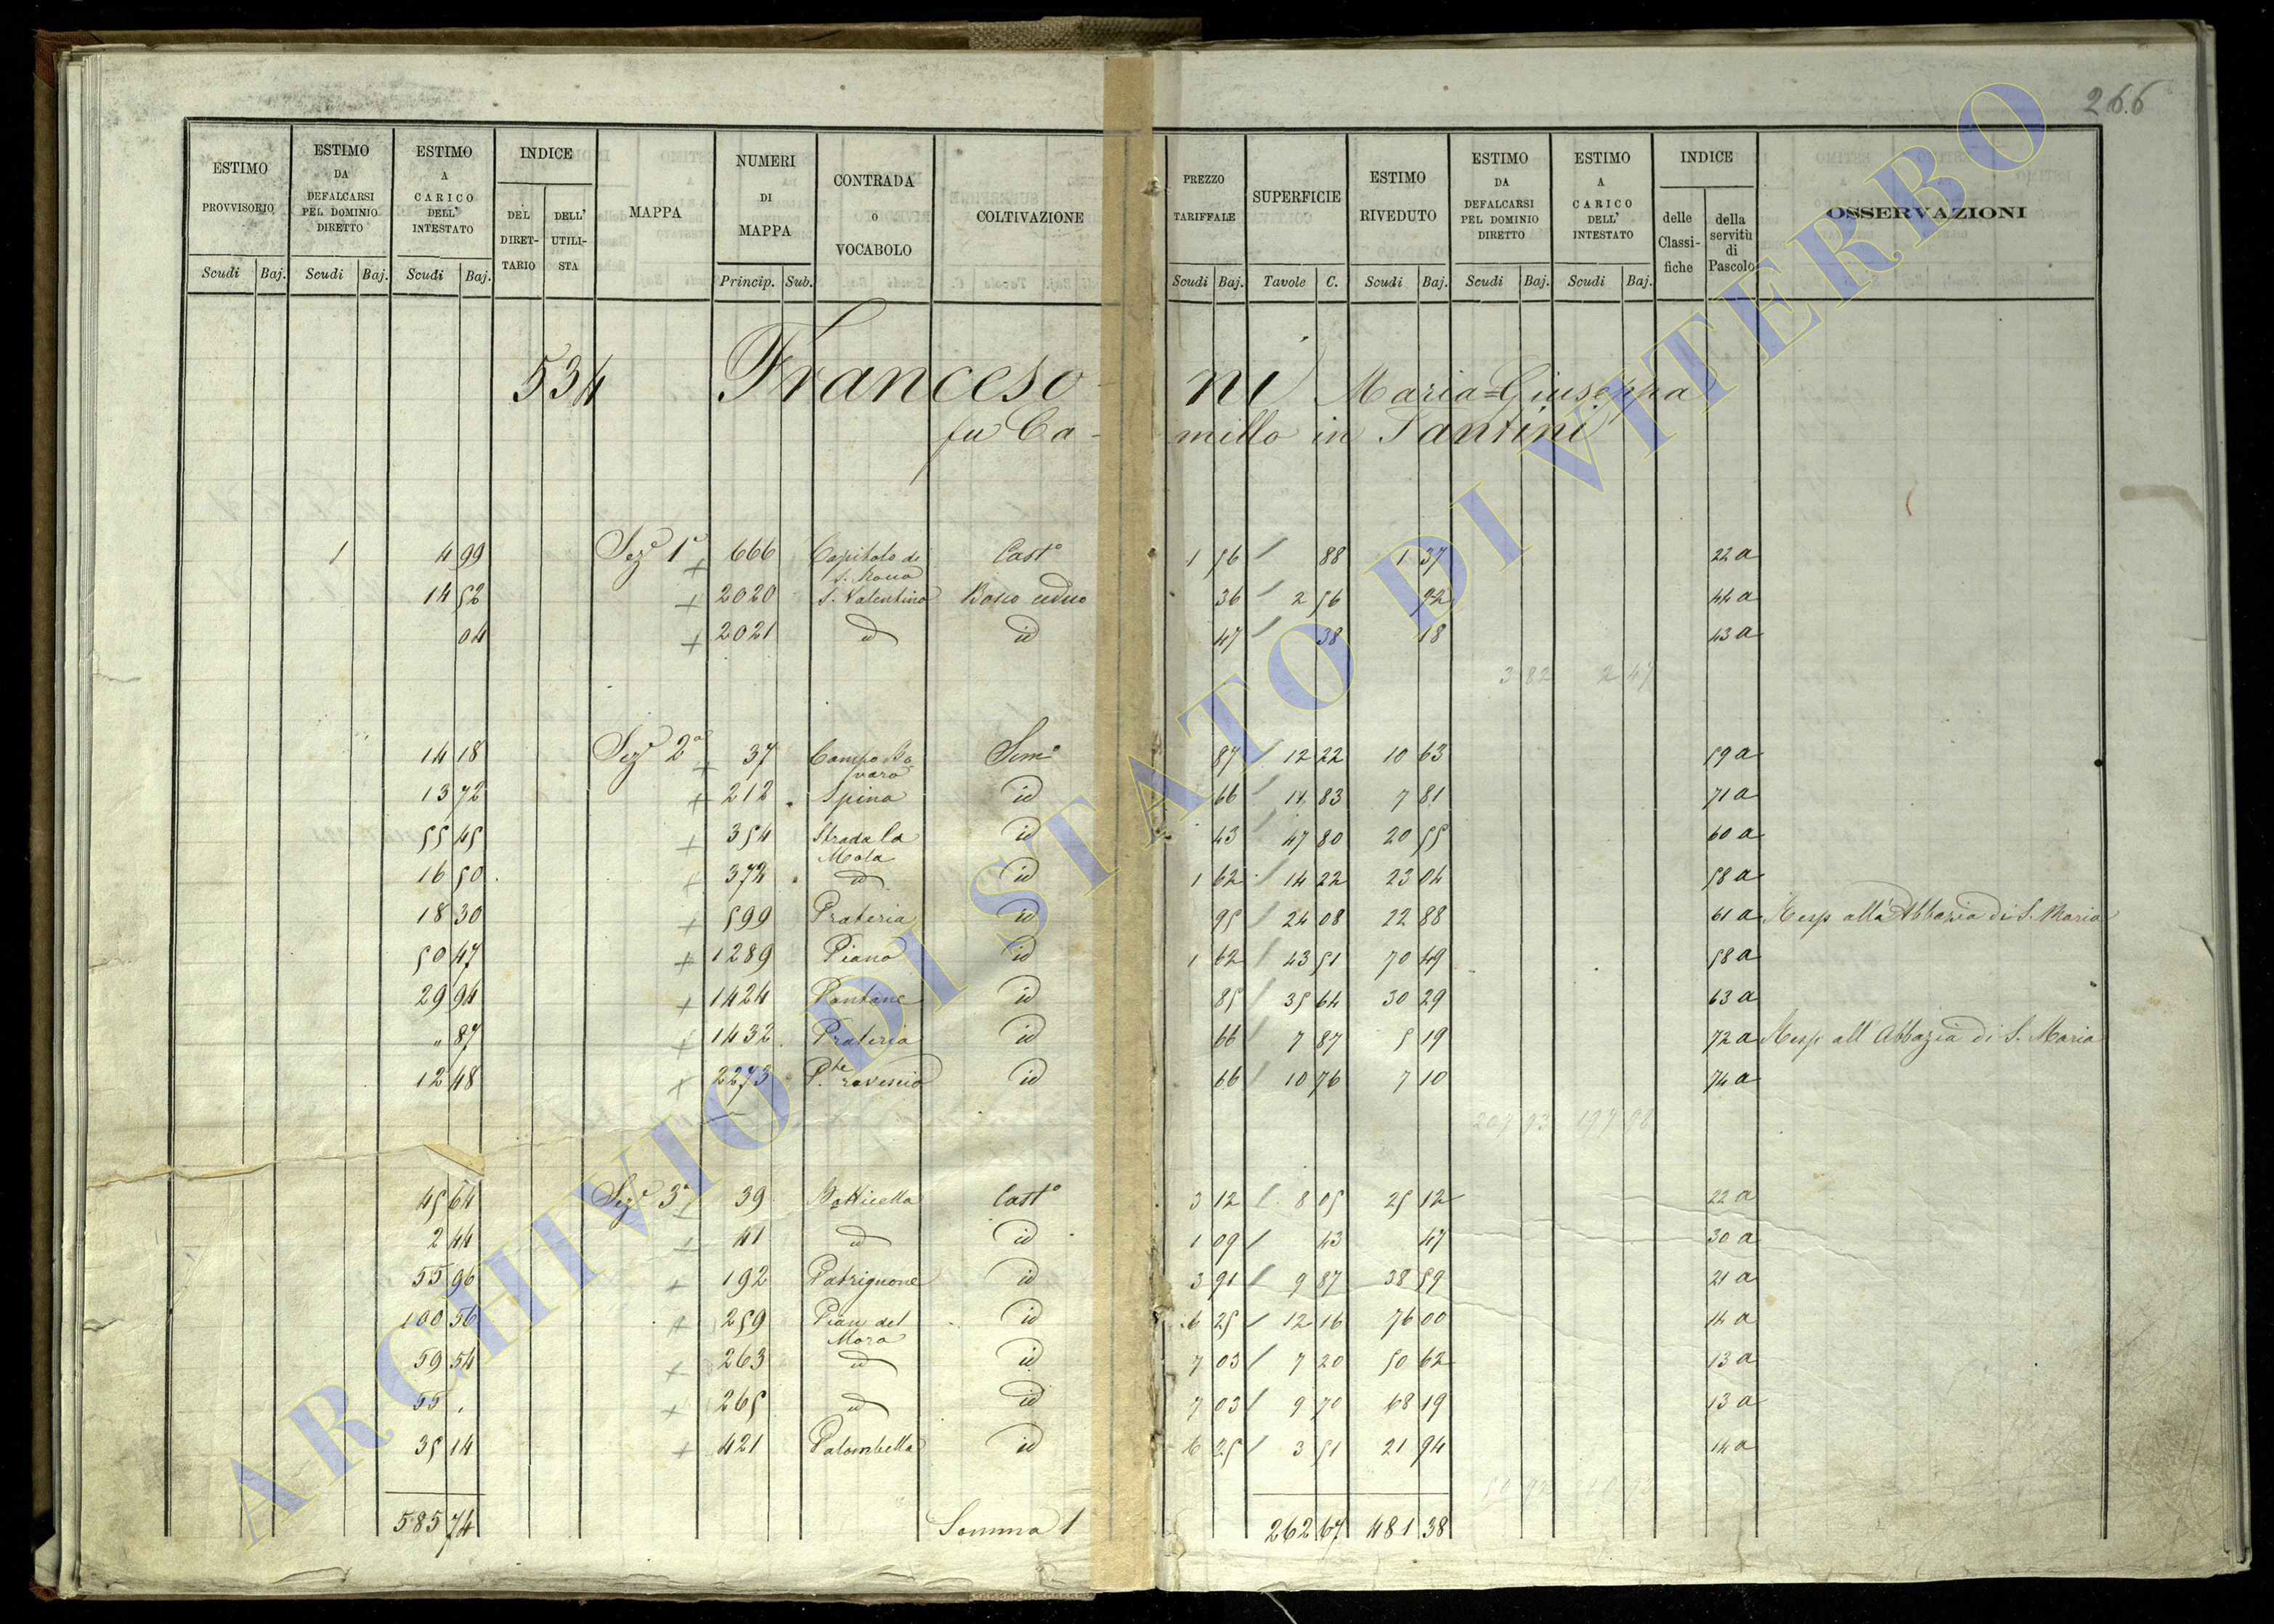 266
ESTIMO PROVVISORIO | ESTIMO DA DEFALCARSI PEL DOMINIO DIRETTO | ESTIMO A CARICO DELL' INTESTATO | INDICE | MAPPA | NUMERI DI MAPPA | CONTRADA o VOCABOLO | COLTIVAZIONE | PREZZO TARIFFALE | SUPERFICIE | ESTIMO RIVEDUTO | ESTIMO DA DEFALCARSI PEL DOMINIO DIRETTO | ESTIMO A CARICO DELL' INTESTATO | INDICE | OSSERVAZIONI
DEL DIRETTARIO | DELL' UTILISTA | delle Classifiche | della servitù di Pascolo
Scudi Baj. | Scudi Baj. | Scudi Baj. | Princip. Sub. | Scudi Baj. | Tavole C. | Scudi Baj. | Scudi Baj. | Scudi Baj.
534 Francesoni Maria=Giuseppa
fu Camillo in Tantini
1 | 4 99 | Sez.e 1a + | 666 | Capitolo di S. Rocco | Cast.o | 1 56 | 88 | 1 37 | 22 a
14 52 | + | 2020 | S. Valentino | Bosco ceduo | 36 | 2 56 | 92 | 44 a
04 | + | 2021 | id | id | 47 | 38 | 18 | 43 a
3 82 | 2 47
14 18 | Sez.e 2a + | 37 | Sem.o | 87 | 12 22 | 10 63 | 59 a
13 72 | + | 212 | Spina | id | 66 | 11 83 | 7 81 | 71 a
55 45 | + | 354 | Strada la Mola | id | 43 | 47 80 | 20 55 | 60 a
16 50 | + | 372 | id | id | 1 62 | 14 22 | 23 04 | 58 a
18 30 | + | 599 | Prateria | id | 95 | 24 08 | 22 88 | 61 a | Resp alla Abbazia di S. Maria
50 47 | + | 1289 | Piano | id | 1 62 | 43 51 | 70 49 | 58 a
29 94 | + | 1424 | Pantane | id | 85 | 35 64 | 30 29 | 63 a
" 87 | + | 1432 | Prateria | id | 66 | 7 87 | 5 19 | 72 a | Resp all' Abbazia di S. Maria
12 48 | + | 2273 | P.te rovescio | id | 66 | 10 76 | 7 10 | 74 a
45 64 | Sez.e 3a + | 39 | Botticella | Cast.o | 3 12 | 8 05 | 25 12 | 22 a
2 44 | + | 41 | id | id | 1 09 | 43 | 47 | 30 a
55 96 | + | 192 | Patrignone | id | 3 91 | 9 87 | 38 59 | 21 a
100 56 | + | 259 | Pian del Moro | id | 6 25 | 12 16 | 76 00 | 14 a
59 54 | + | 263 | id | id | 7 03 | 7 20 | 50 62 | 13 a
55 . | + | 265 | id | id | 7 03 | 9 70 | 68 19 | 13 a
35 14 | + | 421 | Palombella | id | 6 25 | 3 51 | 21 94 | 14 a
585 74 | Somma 1 | 262 67 | 481 38
ARCHIVIO DI STATO DI VITERBO